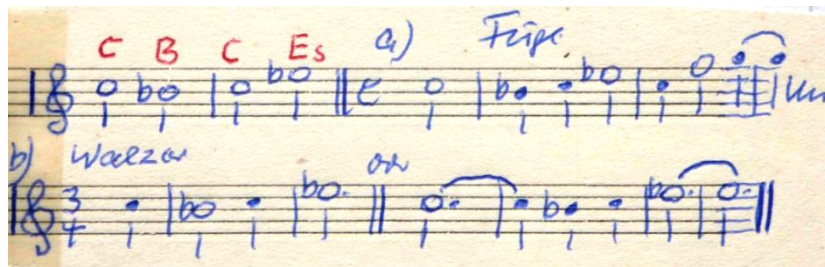 C B C Es a) Fuge
b) Walzer
3
4